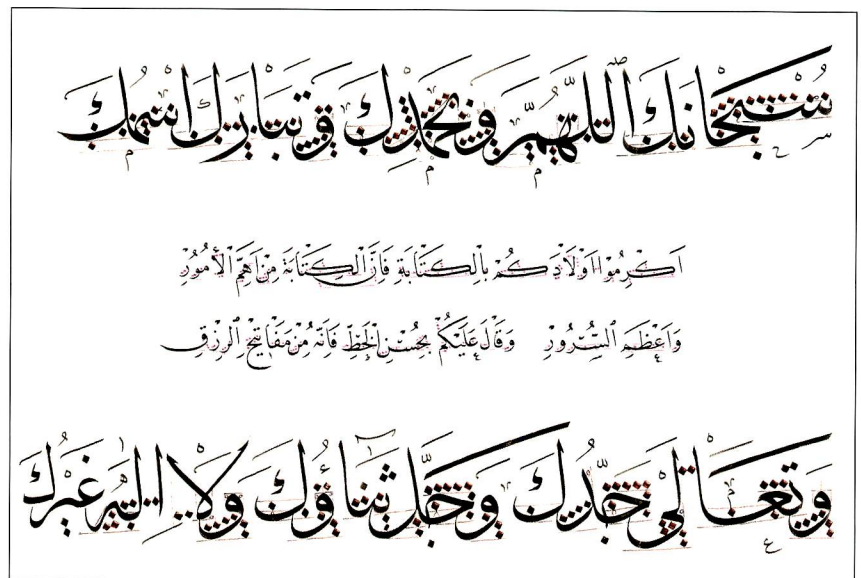 سُبْحَانَكَ اللَّهُمَّ وَبِحَمْدِكَ وَتَبَارَكَ اسْمُكَ
اَكْرِمُوا اَوْلَادَكُمْ بِالْكِتَابَةِ فَاِنَّ الْكِتَابَةَ مِنْ اَهَمِّ الْأُمُورِ
وَاَعْظَمِ السُّرُورِ وَقَالَ عَلَيْكُمْ بِحُسْنِ الْخَطِّ فَاِنَّهُ مِنْ مَفَاتِيحِ الرِّزْقِ
وَتَعَالَى جَدُّكَ وَجَلَّ ثَنَاؤُكَ وَلَا اِلٰهَ غَيْرُكَ